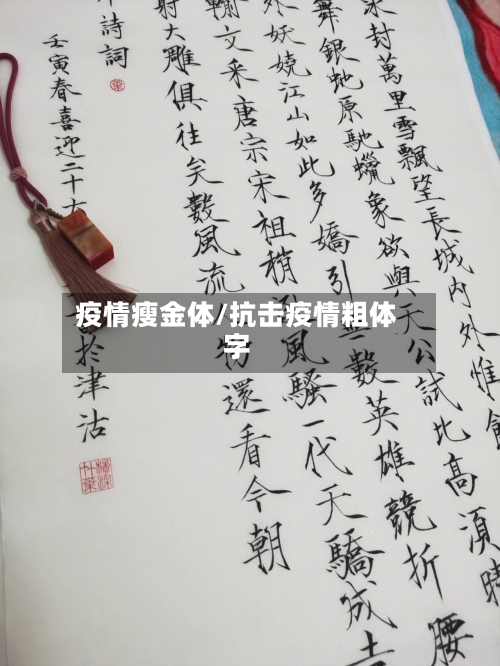 封萬里雪飄望長城內外惟餘
舞銀蛇原馳蠟象欲與天公試比高須晴
外妖嬈江山如此多嬌引數英雄競折腰
輸文采唐宗宋祖稍風騷一代天驕成吉
射大雕俱往矣數風流物還看今朝
詩詞
壬寅春喜迎二十大
於津沽
疫情瘦金体/抗击疫情粗体
字